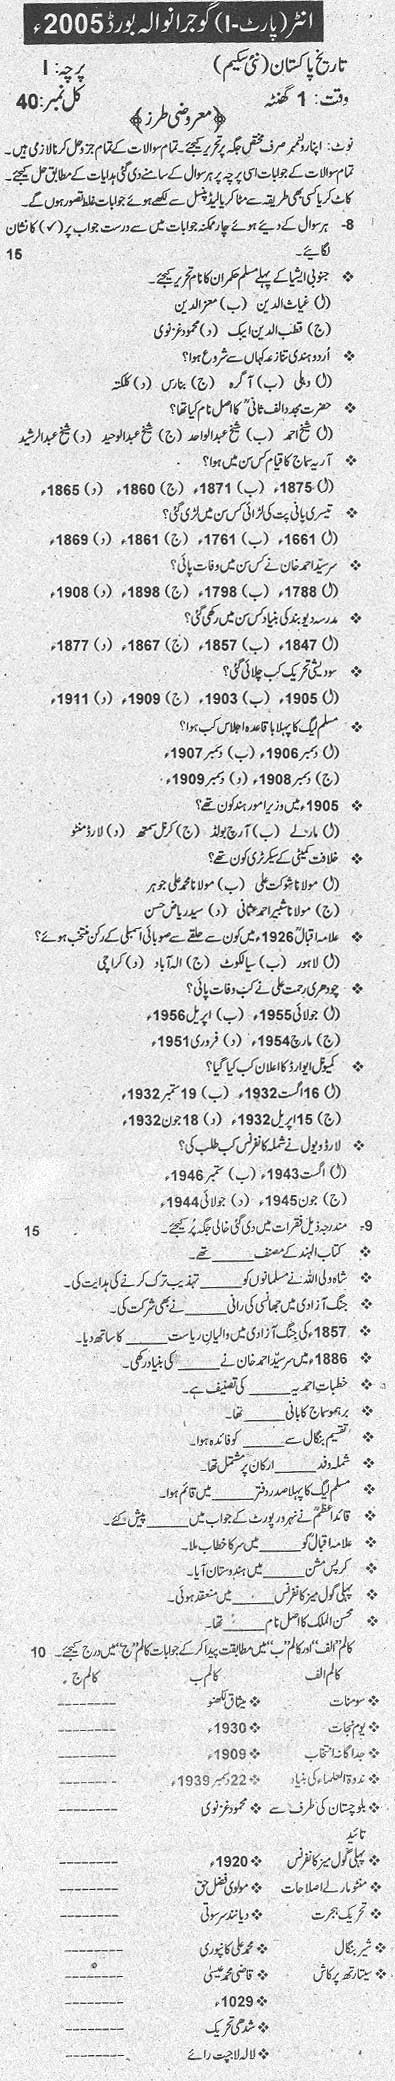 انٹر (پارٹ-I) گوجرانوالہ بورڈ 2005ء
تاریخ پاکستان (نئی سکیم) پرچہ: I
وقت: 1 گھنٹہ کل نمبر: 40
﴿معروضی طرز﴾
نوٹ: اپنا رولنمبر صرف مختص جگہ پر تحریر کیجئے۔ تمام سوالات کے تمام جزو حل کرنا لازمی ہیں۔
تمام سوالات کے جوابات اسی پرچہ پر ہر سوال کے سامنے دی گئی ہدایات کے مطابق حل کیجئے۔
کاٹ کر یا کسی بھی طریقہ سے مٹا کر یا لیڈ پنسل سے لکھے ہوئے جوابات غلط تصور ہوں گے۔
8- ہر سوال کے دیے ہوئے چار ممکنہ جوابات میں سے درست جواب پر (✓) کا نشان
لگائیے۔ 15
❖ جنوبی ایشیا کے پہلے مسلم حکمران کا نام تحریر کیجئے۔
(ا) غیاث الدین (ب) معز الدین
(ج) قطب الدین ایبک (د) محمود غزنوی
❖ اُردو ہندی تنازعہ کہاں سے شروع ہوا؟
(ا) دہلی (ب) آگرہ (ج) بنارس (د) کلکتہ
❖ حضرت مجدد الف ثانیؒ کا اصل نام کیا تھا؟
(ا) شیخ احمد (ب) شیخ عبدالواحد (ج) شیخ عبدالوحید (د) شیخ عبدالرشید
❖ آریہ سماج کا قیام کس سن میں ہوا؟
(ا) 1875ء (ب) 1871ء (ج) 1860ء (د) 1865ء
❖ تیسری پانی پت کی لڑائی کس سن میں لڑی گئی؟
(ا) 1661ء (ب) 1761ء (ج) 1861ء (د) 1869ء
❖ سرسیّد احمد خان نے کس سن میں وفات پائی؟
(ا) 1788ء (ب) 1798ء (ج) 1898ء (د) 1908ء
❖ مدرسہ دیوبند کی بنیاد کس سن میں رکھی گئی؟
(ا) 1847ء (ب) 1857ء (ج) 1867ء (د) 1877ء
❖ سودیشی تحریک کب چلائی گئی؟
(ا) 1905ء (ب) 1903ء (ج) 1909ء (د) 1911ء
❖ مسلم لیگ کا پہلا باقاعدہ اجلاس کب ہوا؟
(ا) دسمبر 1906ء (ب) دسمبر 1907ء
(ج) دسمبر 1908ء (د) دسمبر 1909ء
❖ 1905ء میں وزیر امور ہند کون تھے؟
(ا) مارلے (ب) آرچ بولڈ (ج) کرنل سمتھ (د) لارڈ منٹو
❖ خلافت کمیٹی کے سیکرٹری کون تھے؟
(ا) مولانا شوکت علی (ب) مولانا محمد علی جوہر
(ج) مولانا شبیر احمد عثمانی (د) سید ریاض حسن
❖ علامہ اقبالؒ 1926ء میں کون سے حلقے سے صوبائی اسمبلی کے رکن منتخب ہوئے؟
(ا) لاہور (ب) سیالکوٹ (ج) الہ آباد (د) کراچی
❖ چودھری رحمت علی نے کب وفات پائی؟
(ا) جولائی 1955ء (ب) اپریل 1956ء
(ج) مارچ 1954ء (د) فروری 1951ء
❖ کمیونل ایوارڈ کا اعلان کب کیا گیا؟
(ا) 16 اگست 1932ء (ب) 19 ستمبر 1932ء
(ج) 15 اپریل 1932ء (د) 18 جون 1932ء
❖ لارڈ ویول نے شملہ کانفرنس کب طلب کی؟
(ا) اگست 1943ء (ب) ستمبر 1946ء
(ج) جون 1945ء (د) جولائی 1944ء
9- مندرجہ ذیل فقرات میں دی گئی خالی جگہ پُر کیجئے۔ 15
❖ کتاب الہند کے مصنف _____ تھے۔
❖ شاہ ولی اللہ نے مسلمانوں کو _____ تہذیب ترک کرنے کی ہدایت کی۔
❖ جنگ آزادی میں جھانسی کی رانی _____ نے بھی شرکت کی۔
❖ 1857ء کی جنگ آزادی میں والیانِ ریاست _____ کا ساتھ دیا۔
❖ 1886ء میں سرسیّد احمد خان نے _____ کی بنیاد رکھی۔
❖ خطباتِ احمدیہ _____ کی تصنیف ہے۔
❖ برہمو سماج کا بانی _____ تھا۔
❖ تقسیم بنگال سے _____ کو فائدہ ہوا۔
❖ شملہ وفد _____ ارکان پر مشتمل تھا۔
❖ مسلم لیگ کا پہلا صدر دفتر _____ میں قائم ہوا۔
❖ قائداعظمؒ نے نہرو رپورٹ کے جواب میں _____ پیش کئے۔
❖ علامہ اقبالؒ کو _____ میں سر کا خطاب ملا۔
❖ کرپس مشن _____ میں ہندوستان آیا۔
❖ پہلی گول میز کانفرنس _____ میں منعقد ہوئی۔
❖ محسن الملک کا اصل نام _____ تھا۔
کالم ”الف“ اور کالم ”ب“ میں مطابقت پیدا کر کے جوابات کالم ”ج“ میں درج کیجئے۔ 10
کالم الف کالم ب کالم ج
❖ سومنات ❖ میثاق لکھنو --------
❖ یوم نجات ❖ 1930ء --------
❖ جداگانہ انتخاب ❖ 1909ء --------
❖ ندوۃ العلماء کی بنیاد ❖ 22 دسمبر 1939ء --------
❖ بلوچستان کی طرف سے ❖ محمود غزنوی --------
تائید
❖ پہلی گول میز کانفرنس ❖ 1920ء --------
❖ منٹو مارلے اصلاحات ❖ مولوی فضل حق --------
❖ تحریک ہجرت ❖ دیانند سرسوتی --------
❖ شیر بنگال ❖ محمد علی کانپوری --------
❖ ستیارتھ پرکاش ❖ قاضی محمد عیسیٰ --------
❖ 1029ء --------
❖ شدھی تحریک --------
❖ لالہ لاجپت رائے --------